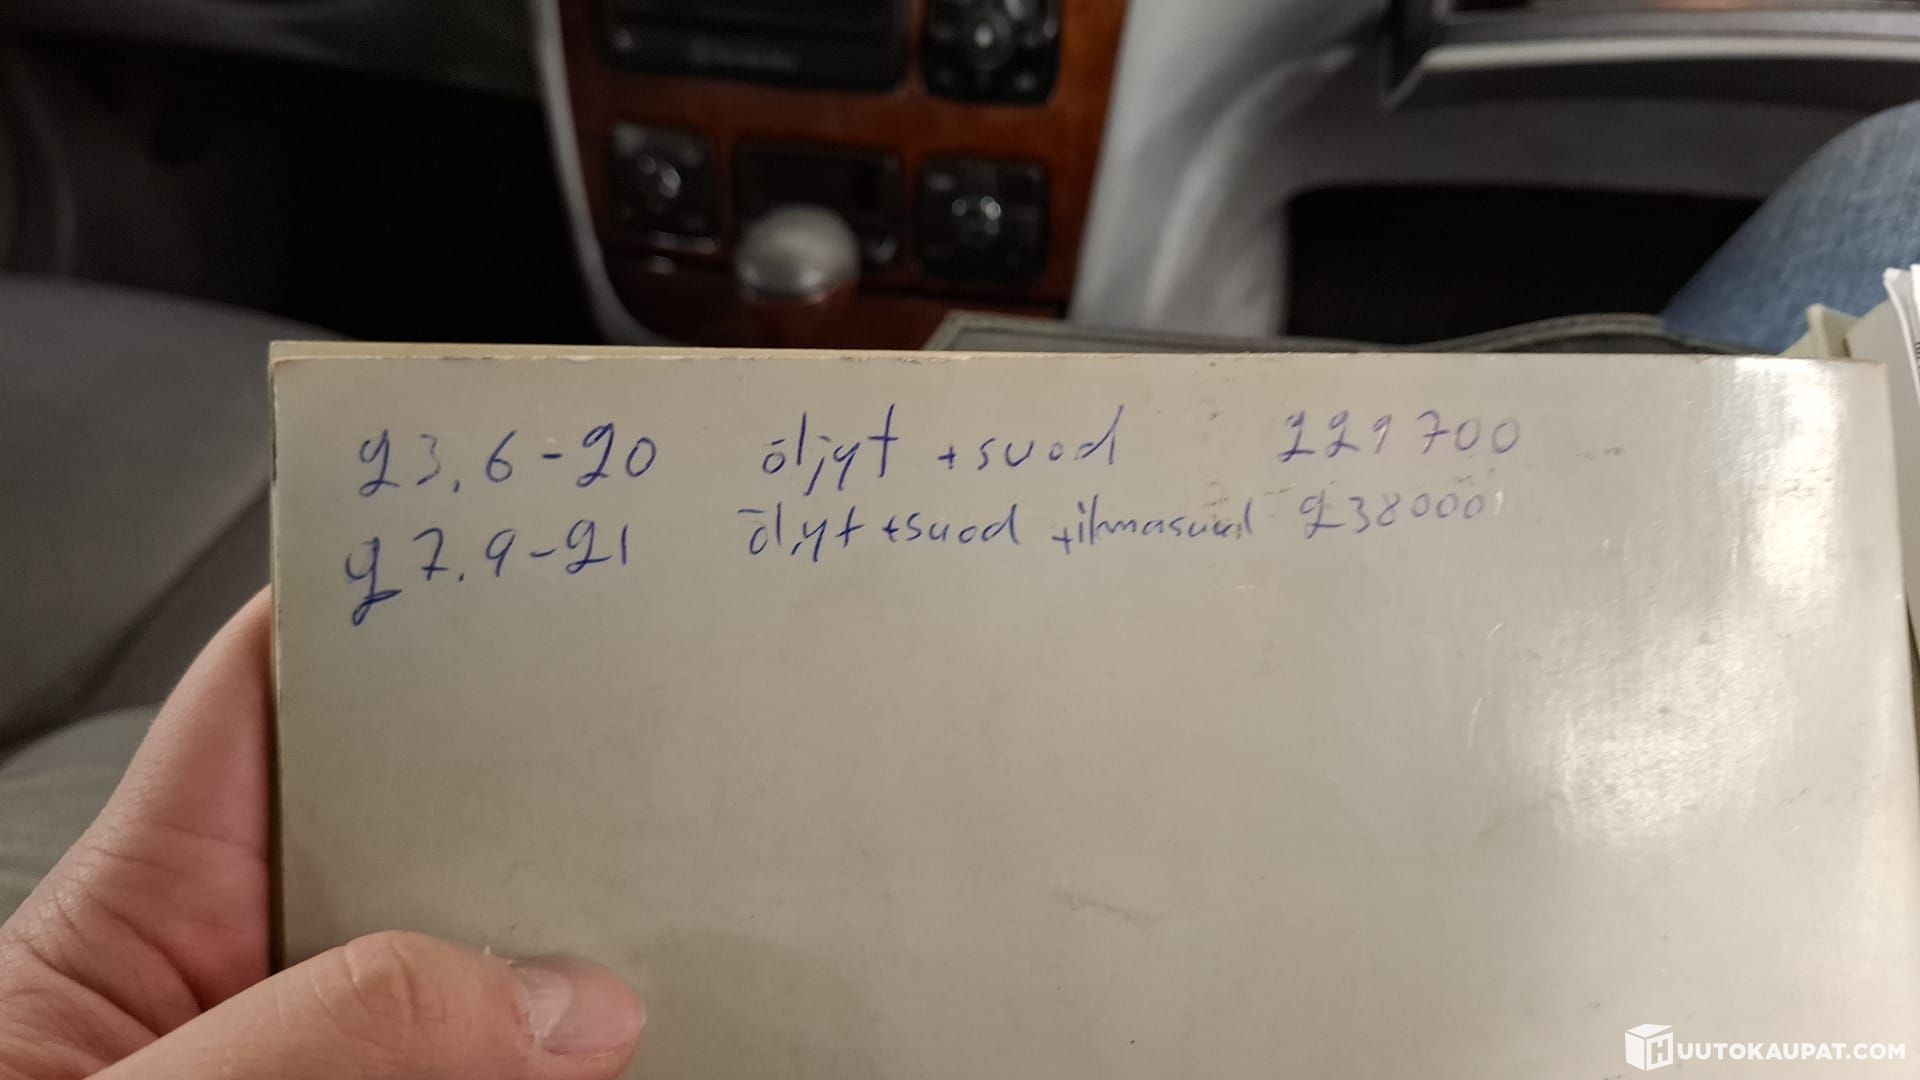 23.6-20 öljyt +suod 221700
27.9-21 öljyt +suod +ilmasuod 238000
HUUTOKAUPAT.COM